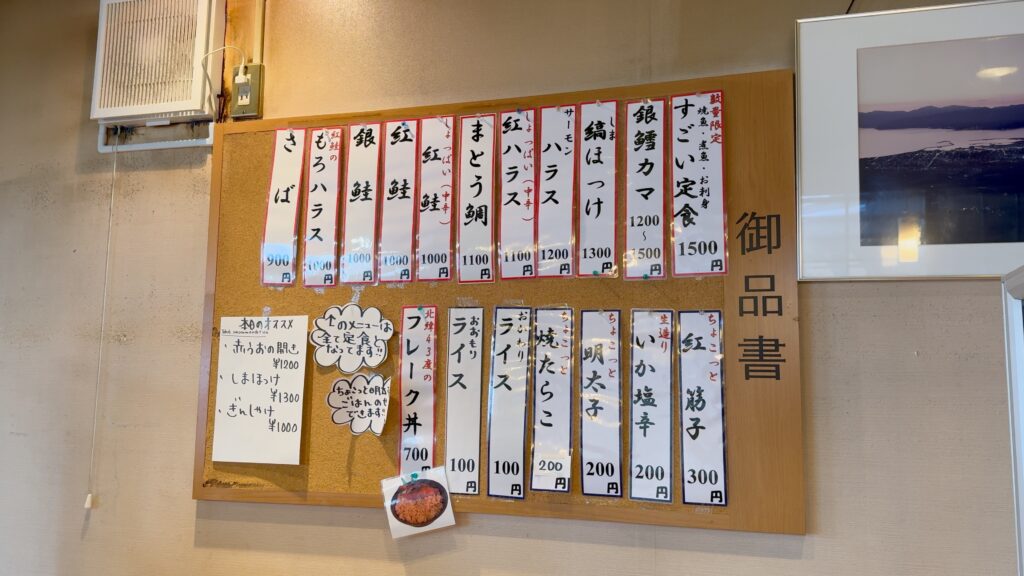 御品書
数量限定
焼魚・煮魚・お刺身
すごい定食
1500円
銀鱈カマ
1200
~
1500円
しま
縞ほっけ
1300円
サーモン
ハラス
1200円
しょっぱい(中辛)
紅ハラス
1100円
まとう鯛
1100円
しょっぱい(中辛)
紅鮭
1000円
紅鮭
1000円
銀鮭
1000円
紅鮭の
もろハラス
1000円
さば
900円
ちょこっと
紅筋子
300円
生造り
いか塩辛
200円
ちょこっと
明太子
200円
ちょこっと
焼たらこ
200円
おかわり
ライス
100円
おおもり
ライス
100円
北緯43度の
フレーク丼
700円
上のメニューは
全て定食に
なってます!!
ちょこっとの用
ごはんのせ
できます
本日のオススメ
・赤うおの開き
¥1200
・しまほっけ
¥1300
・ぎんしゃけ
¥1000